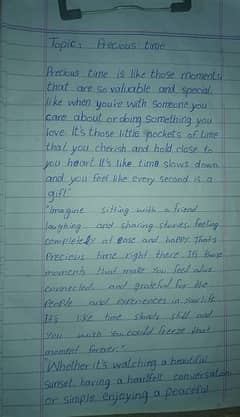 Topic: Precious time
Precious time is like those moments
that are so valuable and special,
like when you're with someone you
care about or doing something you
love. It's those little pockets of time
that you cherish and hold close to
you heart. It's like time slows down
and you feel like every second is a
gift."
"Imagine sitting with a friend
laughing and sharing stories, feeling
completely at ease and happy. That's
Precious time right there. It's those
moments that make you feel alive
connected and grateful for the
People and experiences in your life.
It's like time stands still and
you wish you could freeze that
moment forever."
Whether it's watching a beautiful
sunset, having a heartfelt conversation
or simple enjoying a peaceful